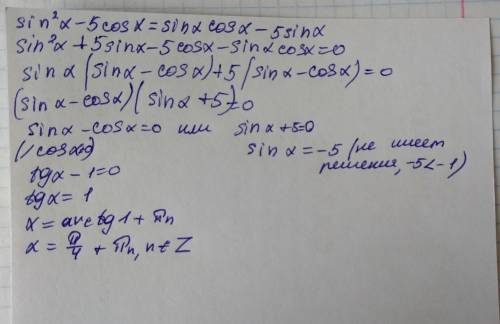 sin²α - 5cosα = sinα cosα - 5sinα
sin²α + 5sinα - 5cosα - sinα cosα = 0
sinα (sinα - cosα) + 5 (sinα - cosα) = 0
(sinα - cosα) (sinα + 5) = 0
sinα - cosα = 0 или sinα + 5 = 0
sinα = -5 (не имеет
решения, -5 < -1)
tgα - 1 = 0
tgα = 1
α = arctg 1 + πn
α = π/4 + πn, n ∈ Z